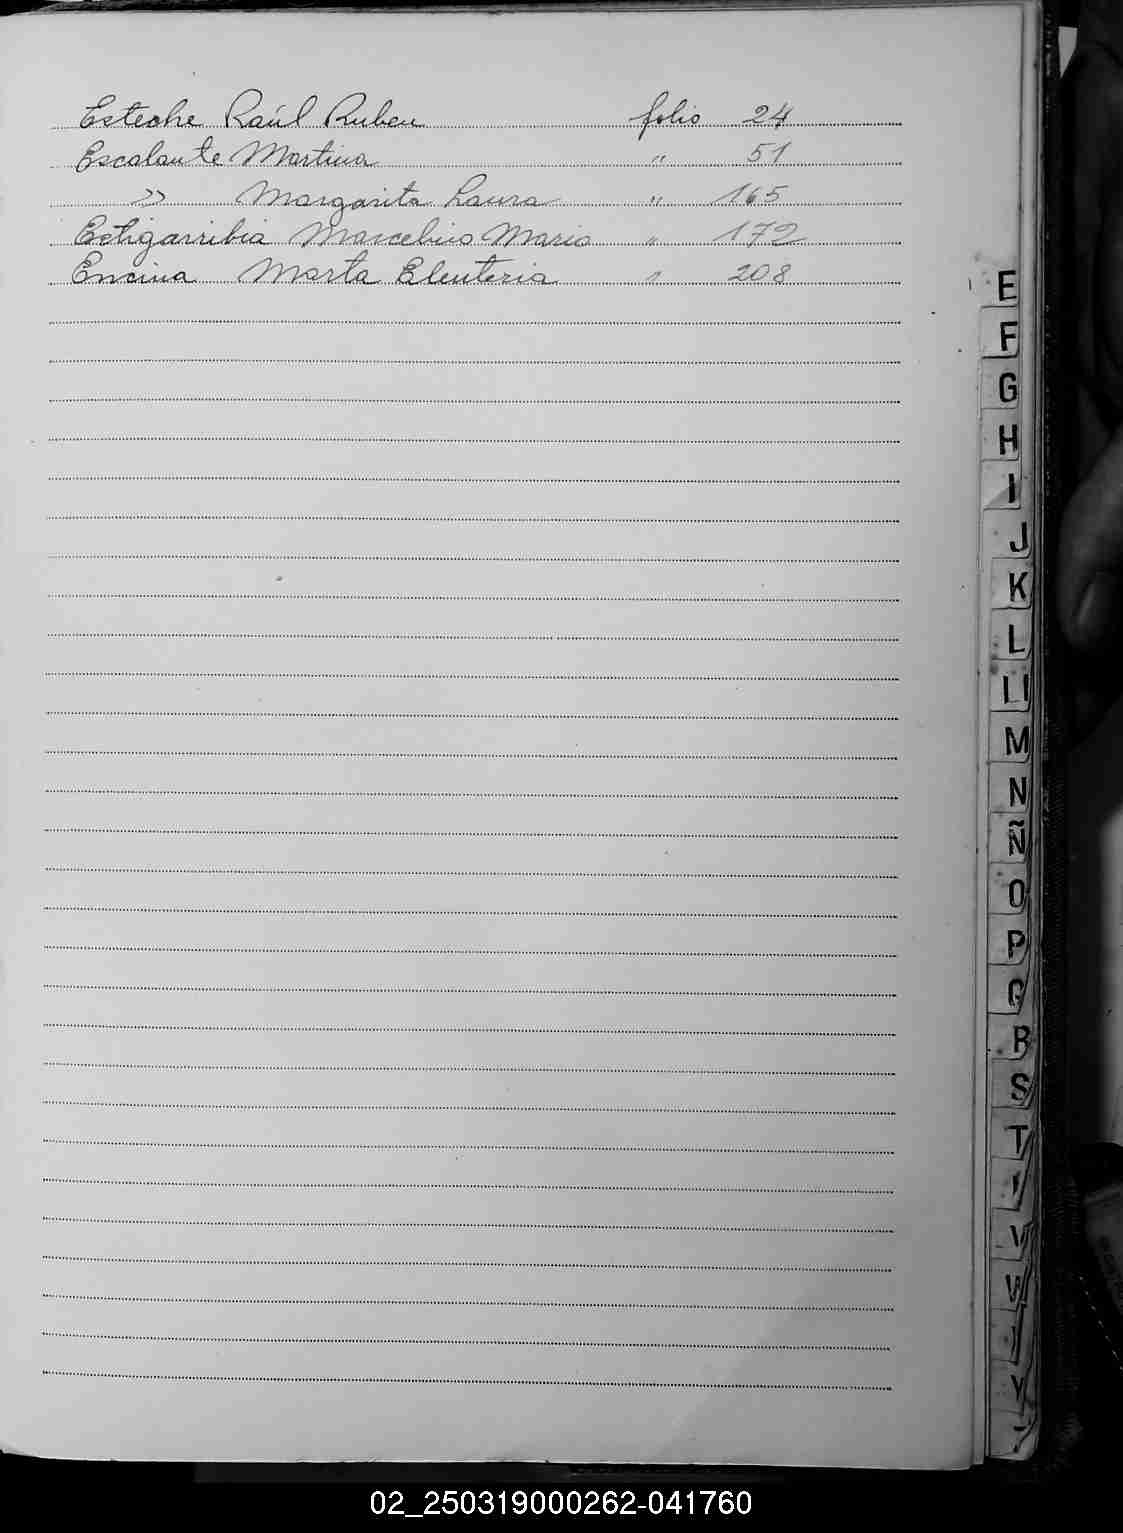 Esteche Raúl Ruben folio 24
Escalante Martina " 51
" Margarita Laura " 165
Estigarribia Marcelino Mario " 172
Encina Marta Eleuteria " 208
E
F
G
H
I
J
K
L
Ll
M
N
Ñ
O
P
Q
R
S
T
V
W
Y
02_250319000262-041760